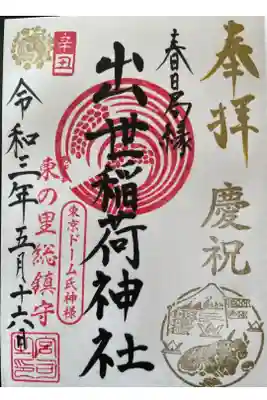 奉拝
慶祝
春日局縁
出世稲荷神社
辛丑
東京ドーム氏神様
東の里総鎮守
令和三年五月十六日